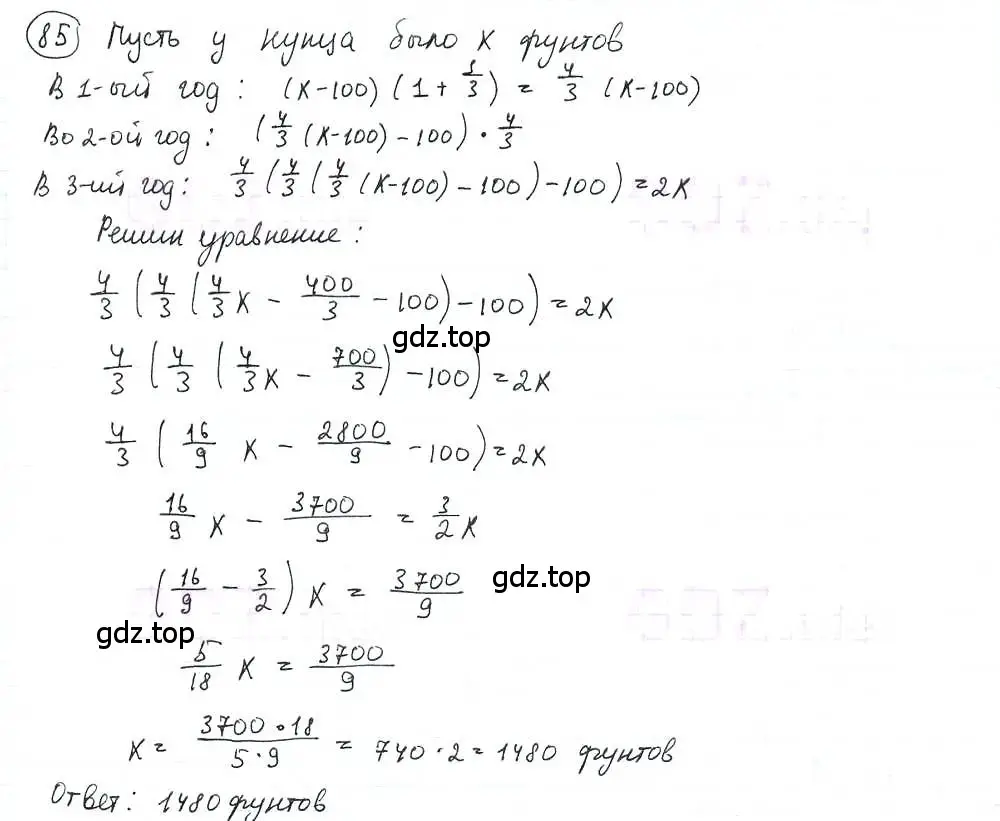 85 Пусть у купца было x фунтов
В 1-ый год: (x-100)(1+1/3) = 4/3 (x-100)
Во 2-ой год: (4/3 (x-100) - 100) · 4/3
В 3-ий год: 4/3 (4/3 (4/3 (x-100) - 100) - 100) = 2x
Решим уравнение:
4/3 (4/3 (4/3 x - 400/3 - 100) - 100) = 2x
gdz.top
4/3 (4/3 (4/3 x - 700/3) - 100) = 2x
4/3 (16/9 x - 2800/9 - 100) = 2x
16/9 x - 3700/9 = 3/2 x
(16/9 - 3/2) x = 3700/9
gdz.top
gdz.top
5/18 x = 3700/9
x = 3700·18/5·9 = 740·2 = 1480 фунтов
Ответ: 1480 фунтов